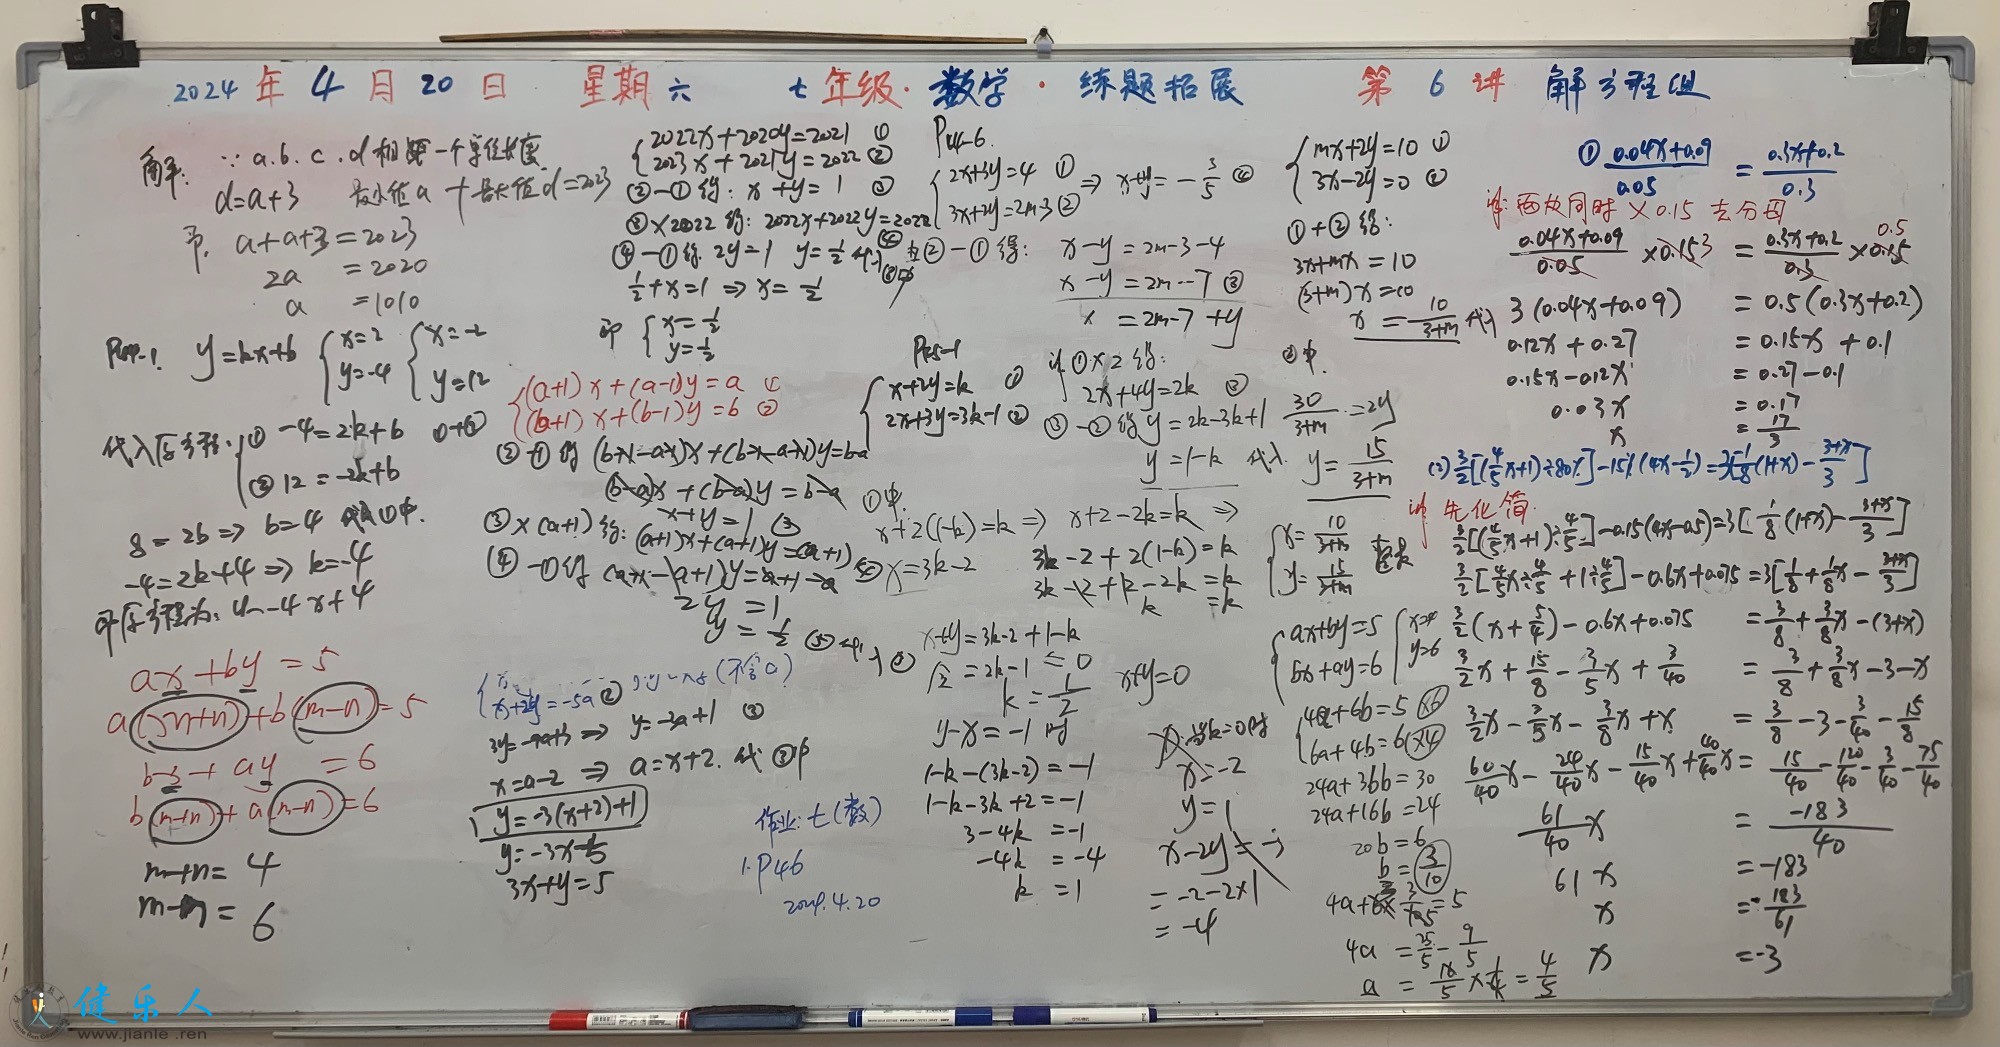 2024年4月20日 星期六 七年级·数学·练题拓展 第6讲 解方程组
解: ∵ a.b.c.d相 一个单位长度
d=a+3 最小值a+最大值d=2023
即. a+a+3=2023
2a =2020
a =1010
y=kx+b { x=2 y=-4 { x=-2 y=12
代入原方程: ① -4=2k+b ①+②
② 12=-2k+b
8=2b⇒b=4 代入①中.
-4=2k+4⇒k=-4
即原方程为: y=-4x+4
ax+by=5
a(m+n)+b(m-n)=5
bx+ay=6
b(m+n)+a(m-n)=6
m+n=4
m-n=6
2022x+2020y=2021 ①
2023x+2021y=2022 ②
②-①得: x+y=1 ③
③×2022得: 2022x+2022y=2022
④-①得 2y=1 y=1/2 代入
1/2+x=1⇒x=1/2
即 { x=1/2
y=1/2
(a+1)x+(a-1)y=a ①
(b+1)x+(b-1)y=b ②
②-①得 (b+1-a-1)x+(b-1-a+1)y=b-a
(b-a)x+(b-a)y=b-a
x+y=1 ③
③×(a+1)得: (a+1)x+(a+1)y=(a+1)
④-①得
2y=1
y=1/2 ⑤代入③
x+2y=-5a ② (不含a)
3y=-9a+3⇒y=-3a+1 ③
x=a-2⇒a=x+2. 代③中
y=-3(x+2)+1
y=-3x-5
3x+y=5
作业: 七(数)
1. P46
2024.4.20
P44-6.
2x+3y=4 ①
3x+2y=2m-3 ②
⇒ x+y=-3/5 ④
②-①得: x-y=2m-3-4
x-y=2m-7 ③
x =2m-7+y
P45-1
x+2y=k ①
2x+3y=3k-1 ②
①×2得:
2x+4y=2k ③
③-②得 y=2k-3k+1
y=1-k 代入
①中.
x+2(1-k)=k⇒x+2-2k=k⇒
x=3k-2
3k-2+2(1-k)=k
3k-2+2-2k=k
k=k
x+y=3k-2+1-k
=2k-1=0
k=1/2
x+y=0
y-x=-1时
1-k-(3k-2)=-1
1-k-3k+2=-1
3-4k=-1
-4k=-4
k=1
当k=0时
x=-2
y=1
x-2y=
=-2-2×1
=-4
mx+2y=10 ①
3x-2y=0 ②
①+②得:
3x+mx=10
(3+m)x=10
x=10/(3+m) 代入
②中.
30/(3+m)=2y
y=15/(3+m)
x=10/(3+m)
y=15/(3+m)
ax+by=5 { x=4
bx+ay=6 y=6
4a+6b=5 (×6)
6a+4b=6 (×4)
24a+36b=30
24a+16b=24
20b=6
b=3/10
4a+6×3/10=5
4a=25/5-9/5
a=16/5×1/4=4/5
① (0.04x+0.09)/0.05 = (0.3x+0.2)/0.3
解: 两边同时×0.15去分母
(0.04x+0.09)/0.05 ×0.15 3 = (0.3x+0.2)/0.3 ×0.15 0.5
3(0.04x+0.09) =0.5(0.3x+0.2)
0.12x+0.27 =0.15x+0.1
0.15x-0.12x =0.27-0.1
0.03x =0.17
x =17/3
解: 先化简
3/2[(4/5x+1)÷4/5]-0.15(4x-0.5)=3[1/8(1+x)-(3+x)/3]
3/2[4/5x÷4/5+1÷4/5]-0.6x+0.075=3[1/8+1/8x-(3+x)/3]
3/2(x+5/4)-0.6x+0.075 =3/8+3/8x-(3+x)
3/2x+15/8-3/5x+3/40 =3/8+3/8x-3-x
3/2x-3/5x-3/8x+x =3/8-3-3/40-15/8
60/40x-24/40x-15/40x+40/40x=15/40-120/40-3/40-75/40
61/40x =-183/40
61x =-183
x =-183/61
x =-3
健乐人
www.jianle.ren